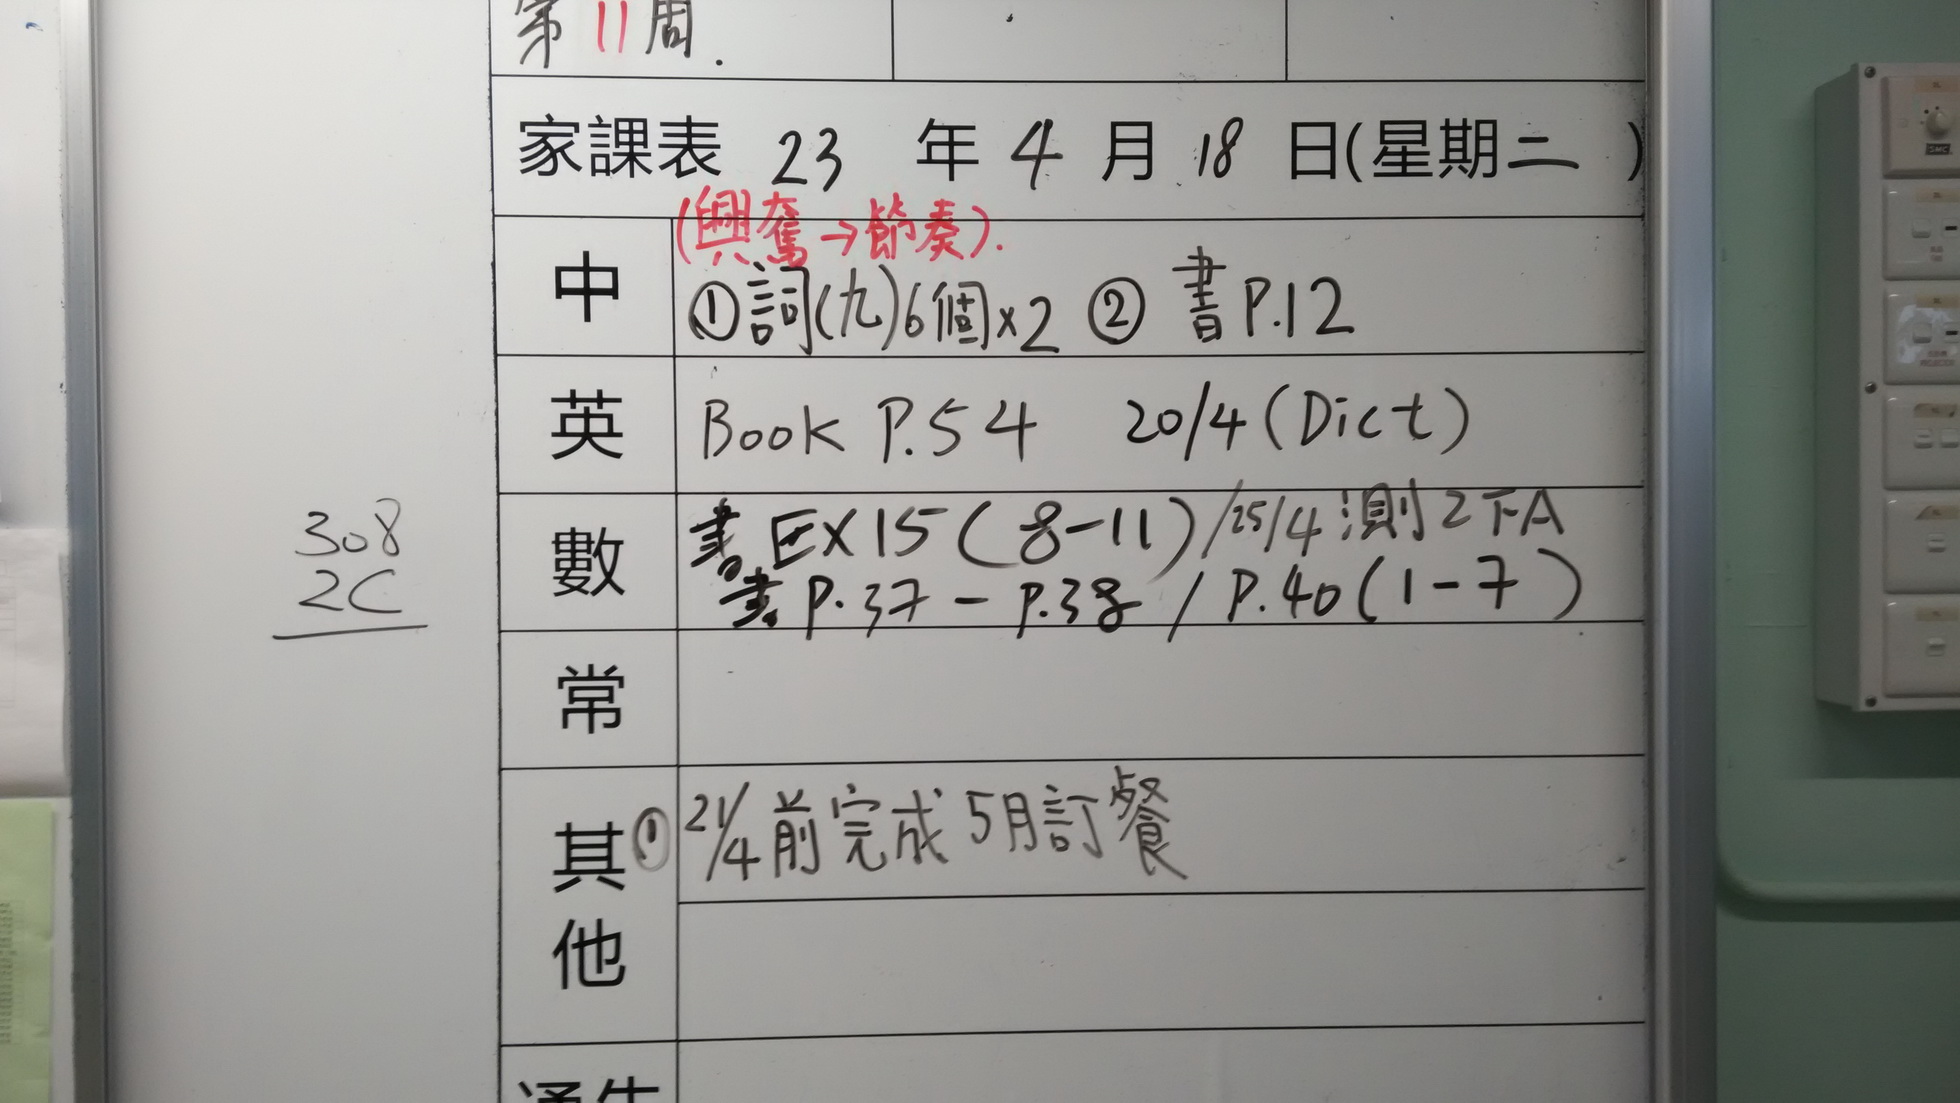 第11周.
家課表 23 年 4 月 18 日(星期二 )
(興奮→節奏).
中 ①詞(九)6個x2 ② 書P.12
英 Book P.54 20/4(Dict)
數 書 EX15(8-11)/25/4測2下A
書 P.37-P.38/P.40(1-7)
308
2C
常
其他 ① 21/4前完成5月訂餐
通告